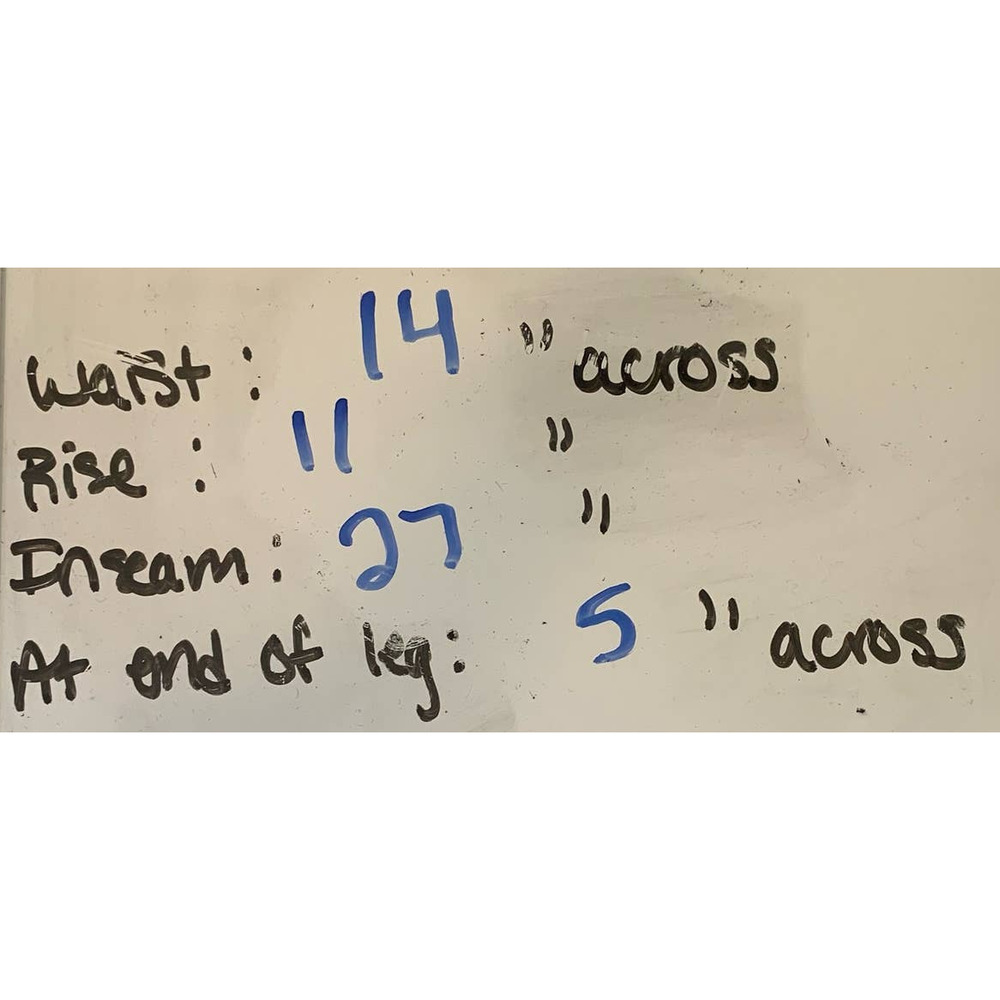 Waist: 14 " across
Rise: 11 "
Inseam: 27 "
At end of leg: 5 " across